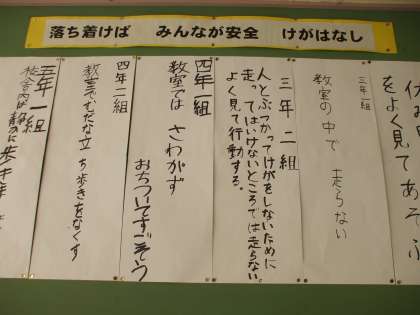 落ち着けば みんなが安全 けがはなし
をよく見てあそぶ
三年一組
教室の中で 走らない
三年二組
人とぶつかってけがをしないために
走ってはいけないところでは走らない
よく見て行動する。
四年一組
教室では さわがず
おちついてすごそう
四年二組
教室でむだな立ち歩きをなくす
五年一組
校舎内は静かに歩